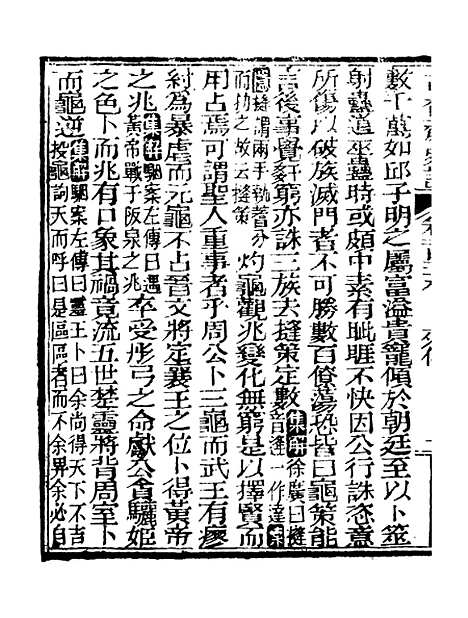 數千萬如邱子明之屬富溢貴寵傾於朝廷至以卜筮
射蠱道巫蠱時或頗中素有眦睚不快因公行誅恣意
所傷以破族滅門者不可勝數百僚蕩恐皆曰龜策能
言後事覺姦窮亦誅三族夫摓策定數集解徐廣曰摓音逢一作達索
隱摓謂兩手執蓍分而扐之故云摓策灼龜觀兆變化無窮是以擇賢而
用占焉可謂聖人重事者乎周公卜三龜而武王有瘳
紂爲暴虐而元龜不占晉文將定襄王之位卜得黃帝
之兆集解駰案左傳曰遇黃帝戰于阪泉之兆卒受彤弓之命獻公貪驪姬
之色卜而兆有口象其禍竟流五世楚靈將背周室卜
而龜逆集解駰案左傳曰靈王卜曰余尚得天下不吉投龜詬天而呼曰是區區者而不余畀余必自